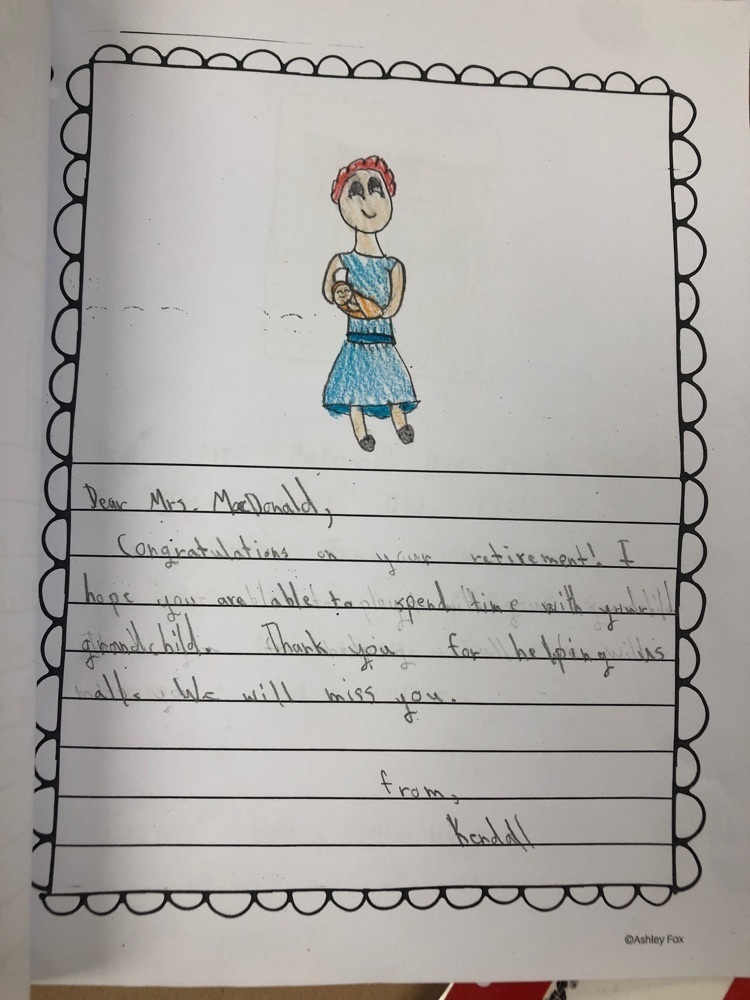 Dear Mrs. MacDonald,
Congratulations on your retirement! I
hope you are able to spend time with your
grandchild. Thank you for helping us
all. We will miss you.
from,
Kendall
©Ashley Fox